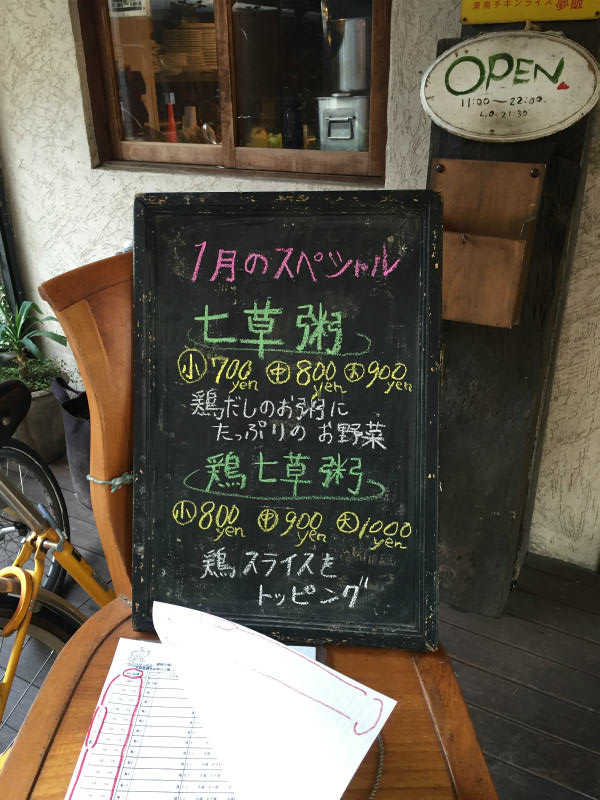 海南チキンライス 夢飯
OPEN
11:00～22:00.
L.O. 21:30
1月のスペシャル
七草粥
小700yen 中800yen 大900yen
鶏だしのお粥に
たっぷりの お野菜
鶏七草粥
小800yen 中900yen 大1000yen
鶏スライスを
トッピング